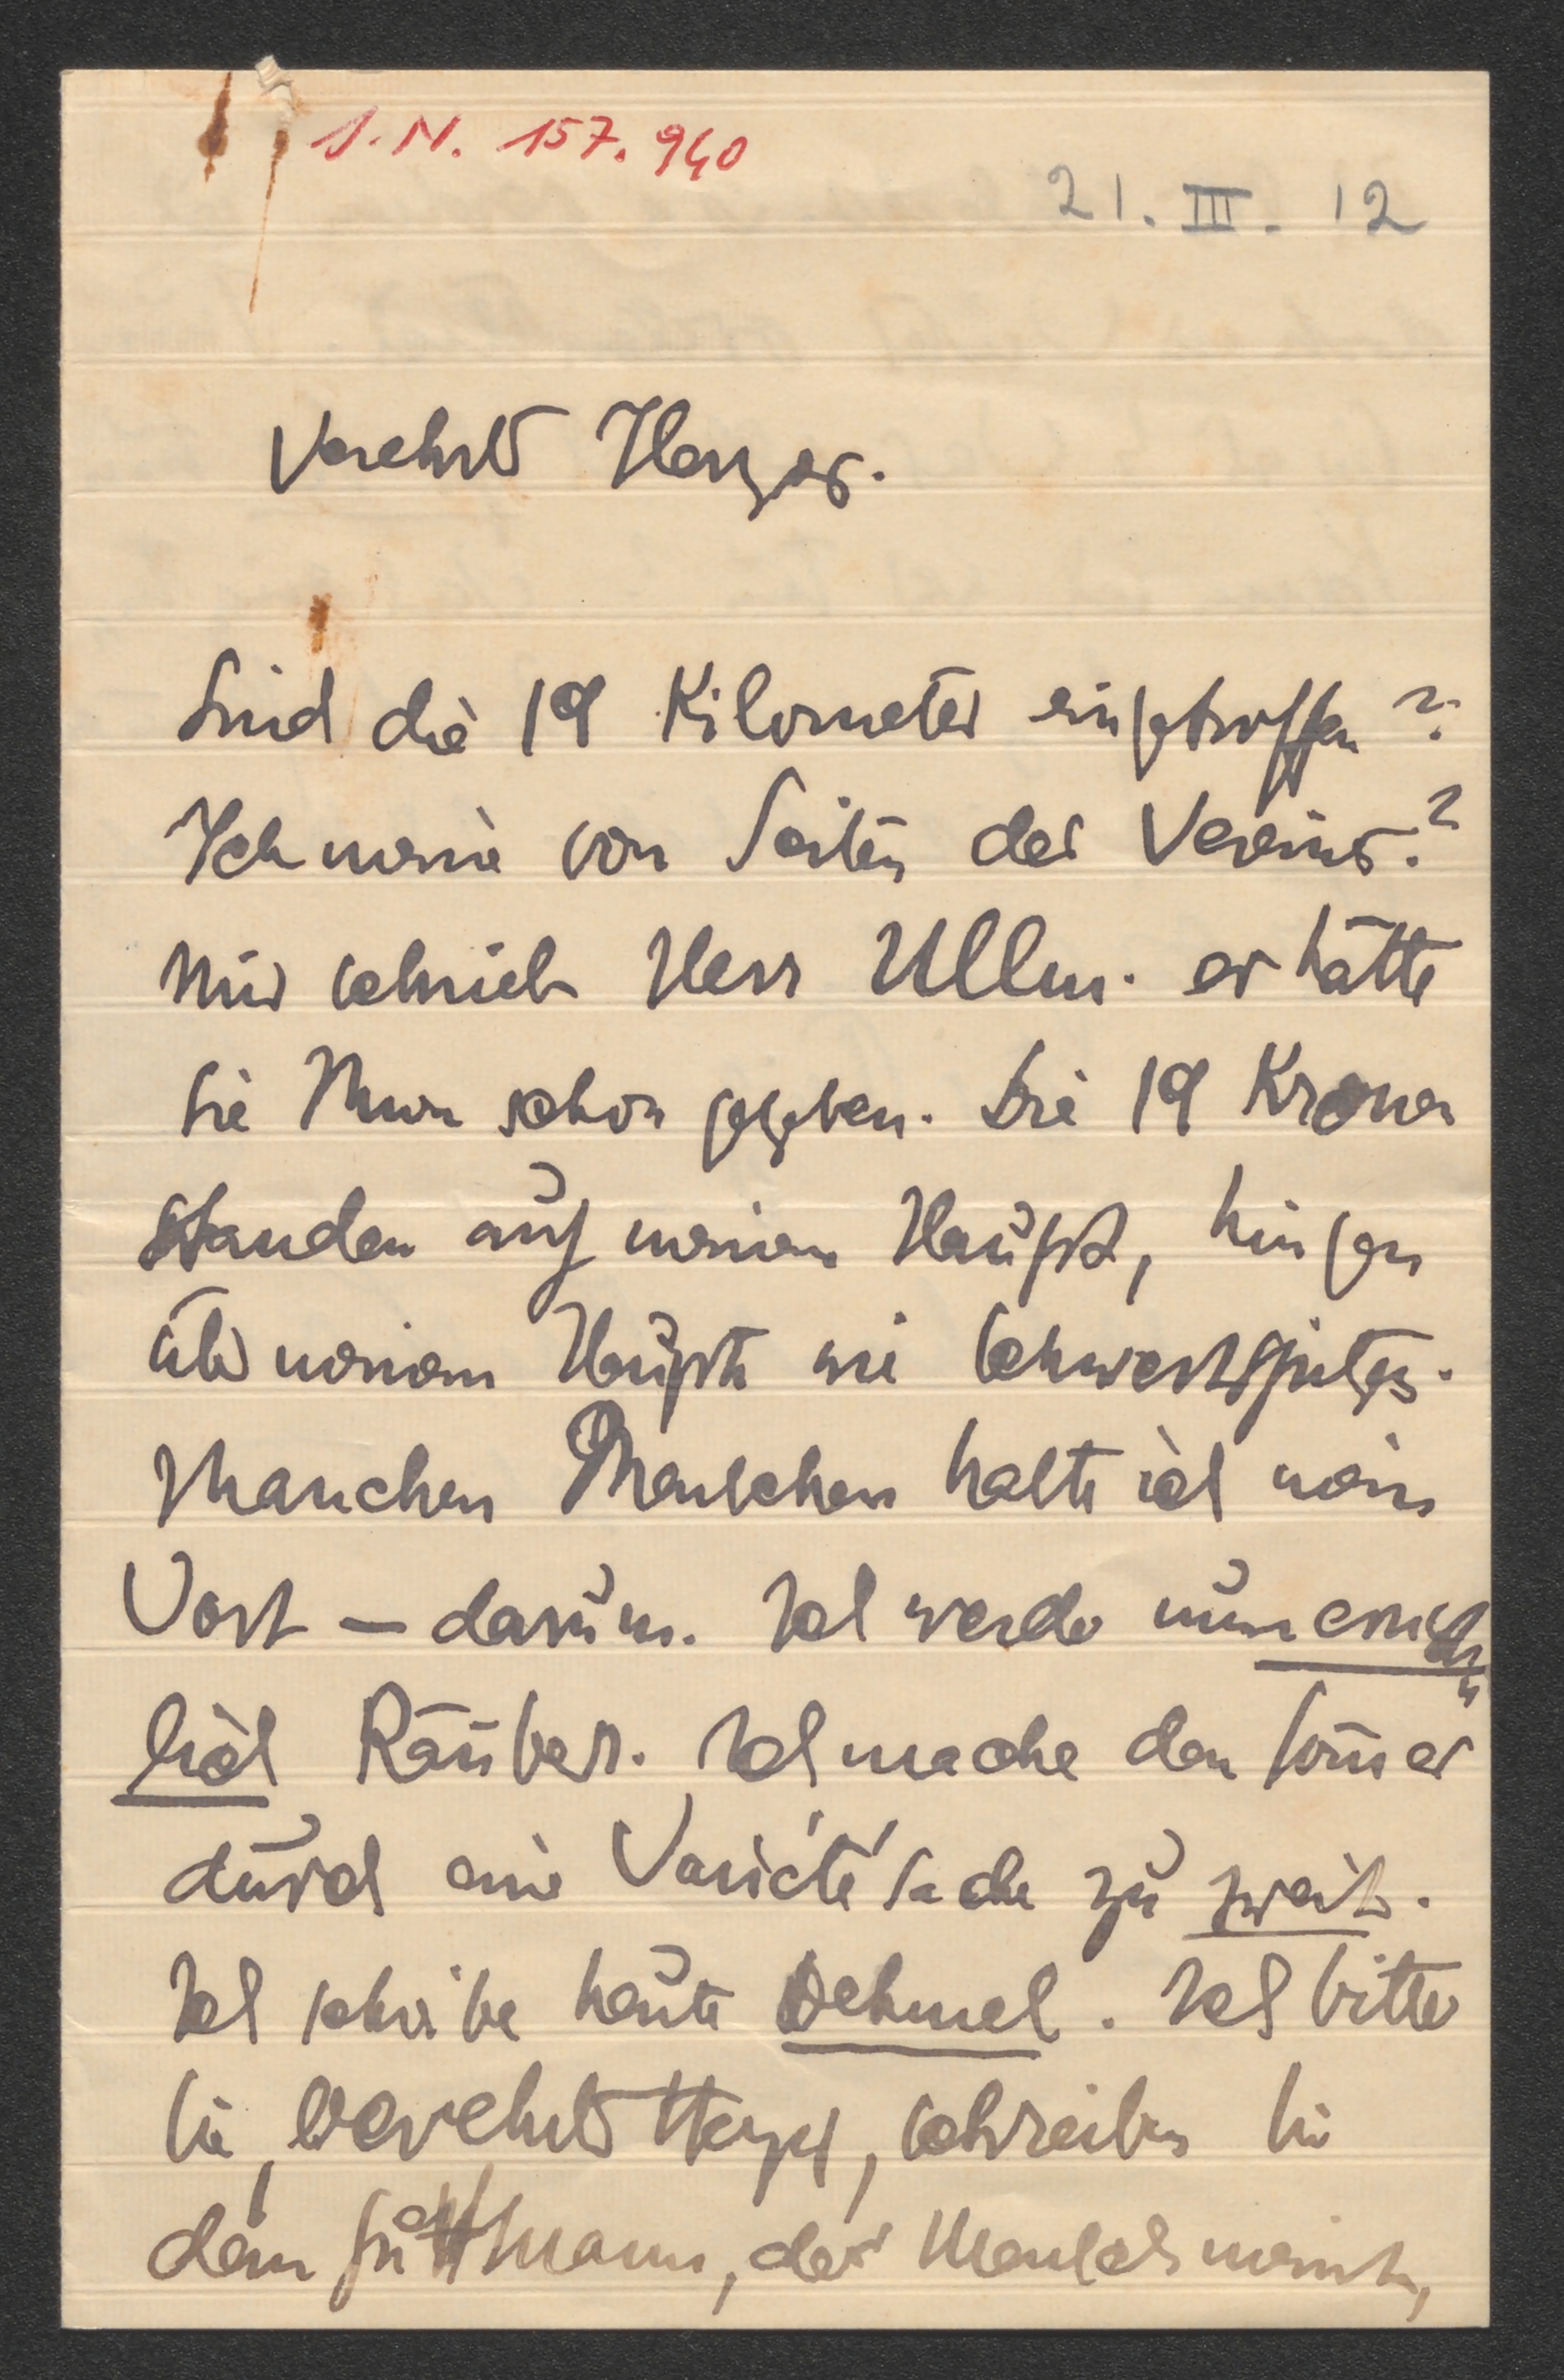 I.N. 157.940
21. III. 12
Verehrter Herzog.
Sind die 19 Kilometer eingetroffen?
Ich meine von Seiten des Vereins?
Mir schrieb Herr Ullm. er hätte
sie Ihnen schon gegeben. Die 19 Kronen
standen auf meinem Haupt, hingen
über meinem Haupte wie Schwertspitzen.
Manchen Menschen halte ich mein
Wort – darum. Ich werde nun
lich Räuber. Ich mache den
durch eine Varièté sache zu zweit.
Ich schreibe heute Dehmel. Ich bitte
Sie, verehrter Herzog, schreiben Sie
dem Guttmann, der Mensch meint,